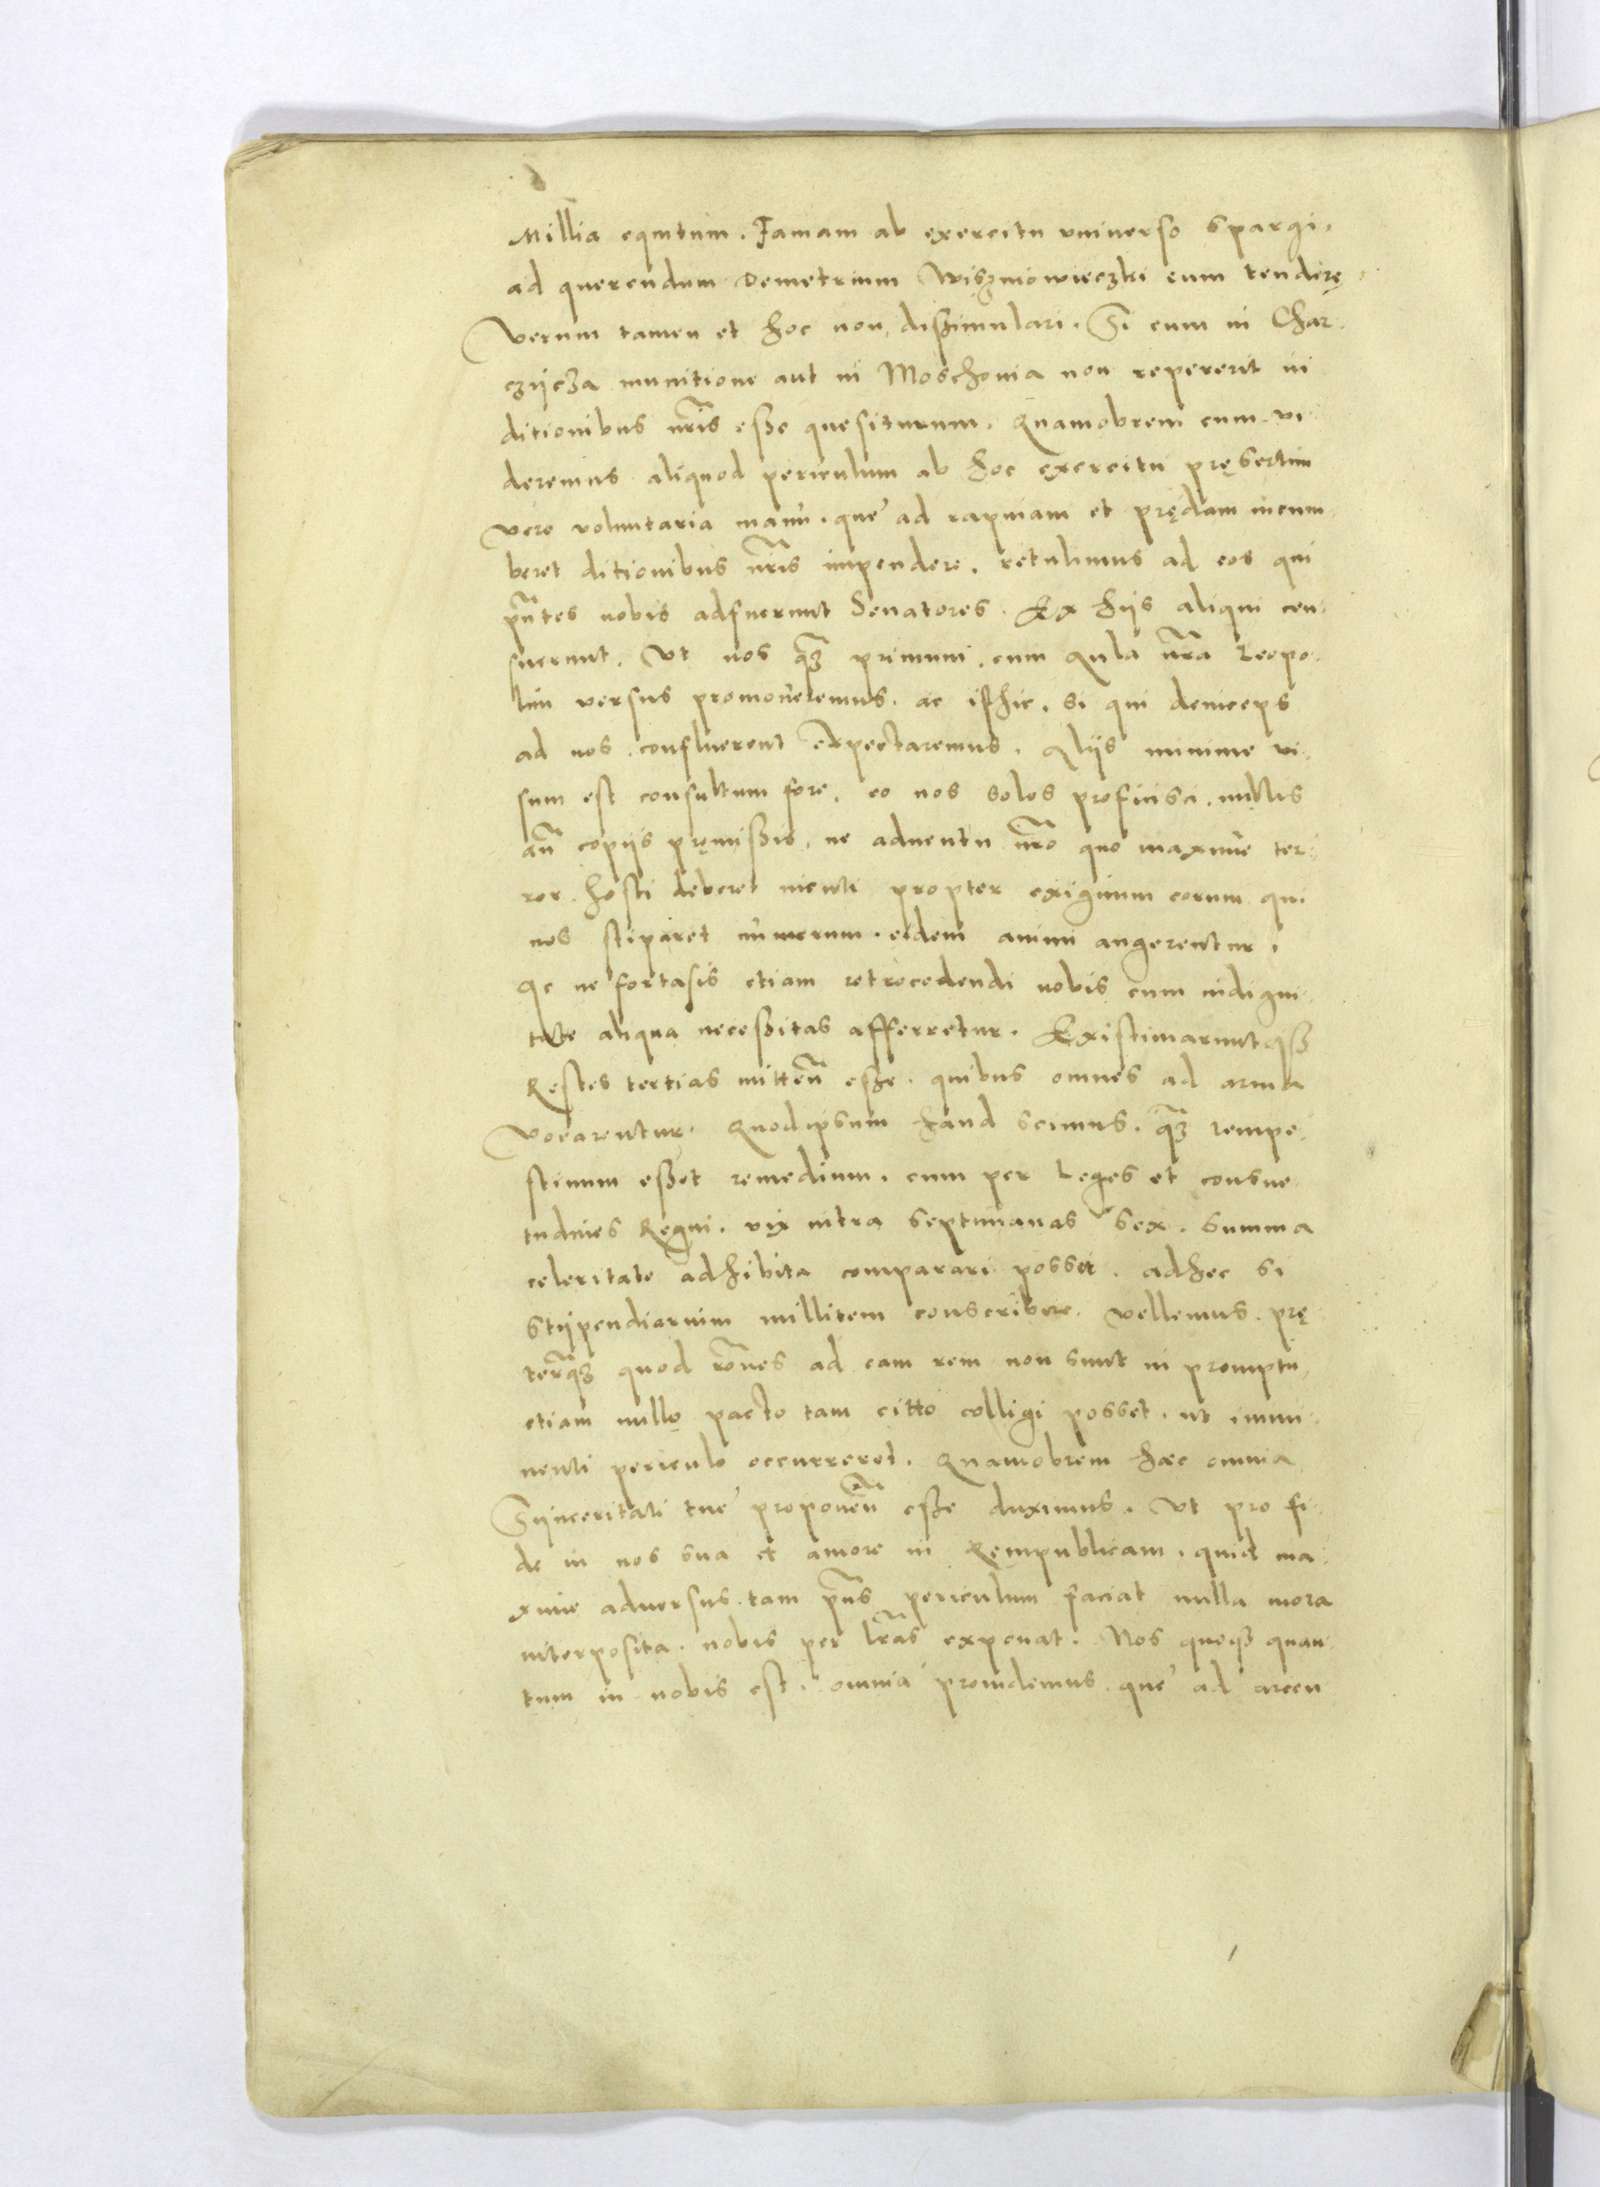 Millia equitum. Famam ab exercitu vniuerso spargi.
ad querendum Demetrium Wiszniowieczki eum tendere
Verum tamen et hoc non dissimulari. Si eum in Char
czijcza munitione aut in Moschouia non repererit in
ditionibus nr̃is esse quesiturum. Quamobrem cum vi
deremus aliquod periculum ab hoc exercitu pręsertim
vero voluntaria manu. que ad rapinam et prędam incum
beret ditionibus nr̃is impendere. retulimus ad eos qui
pñtes nobis adfuerunt Senatores. Ex hijs aliqui cen
suerunt. Vt nos q̃ꝫ primum. cum Aula nr̃a Leopo
lim versus promoueremus. ac isthic. si qui deinceps
ad nos confluerent expectaremus. Alijs minime vi
sum est consultum fore. eo nos solos proficisci. nullis
añ copijs pręmissis. ne aduentu nr̃o quo maxime ter
ror hosti deberet incuti propter exiguum eorum qui
nos stiparet numerum. eidem animi augerentur.
Ac ne fortasis etiam retrocedendi nobis cum indigni
tate aliqua necessitas afferretur. Existimaruntqꝫ
Restes tertias mitteñ esse. quibus omnes ad arma
vocarentur. Quodipsum haud scimus. q̃ꝫ tempe
stiuum esset remedium. cum per Leges et consue
tudines Regni. vix intra septimanas sex. summa
celeritate adhibita comparari posset. adhec si
stijpendiarium millitem conscribere vellemus. prę
terq̃ꝫ quod rõnes ad eam rem non sunt in promptu
etiam nullo pacto tam citto colligi posset. ut immi
nenti periculo occurreret. Quamobrem hæc omnia
Sijnceritati tue proponeñ esse duximus. Vt pro fi
de in nos sua et amore in Rempublicam. quid ma
xime aduersus tam pñs periculum faciat nulla mora
interposita. nobis per lr̃as exponat. Nos quoqꝫ quan
tum in nobis est. omnia prouidemus. que ad arcen